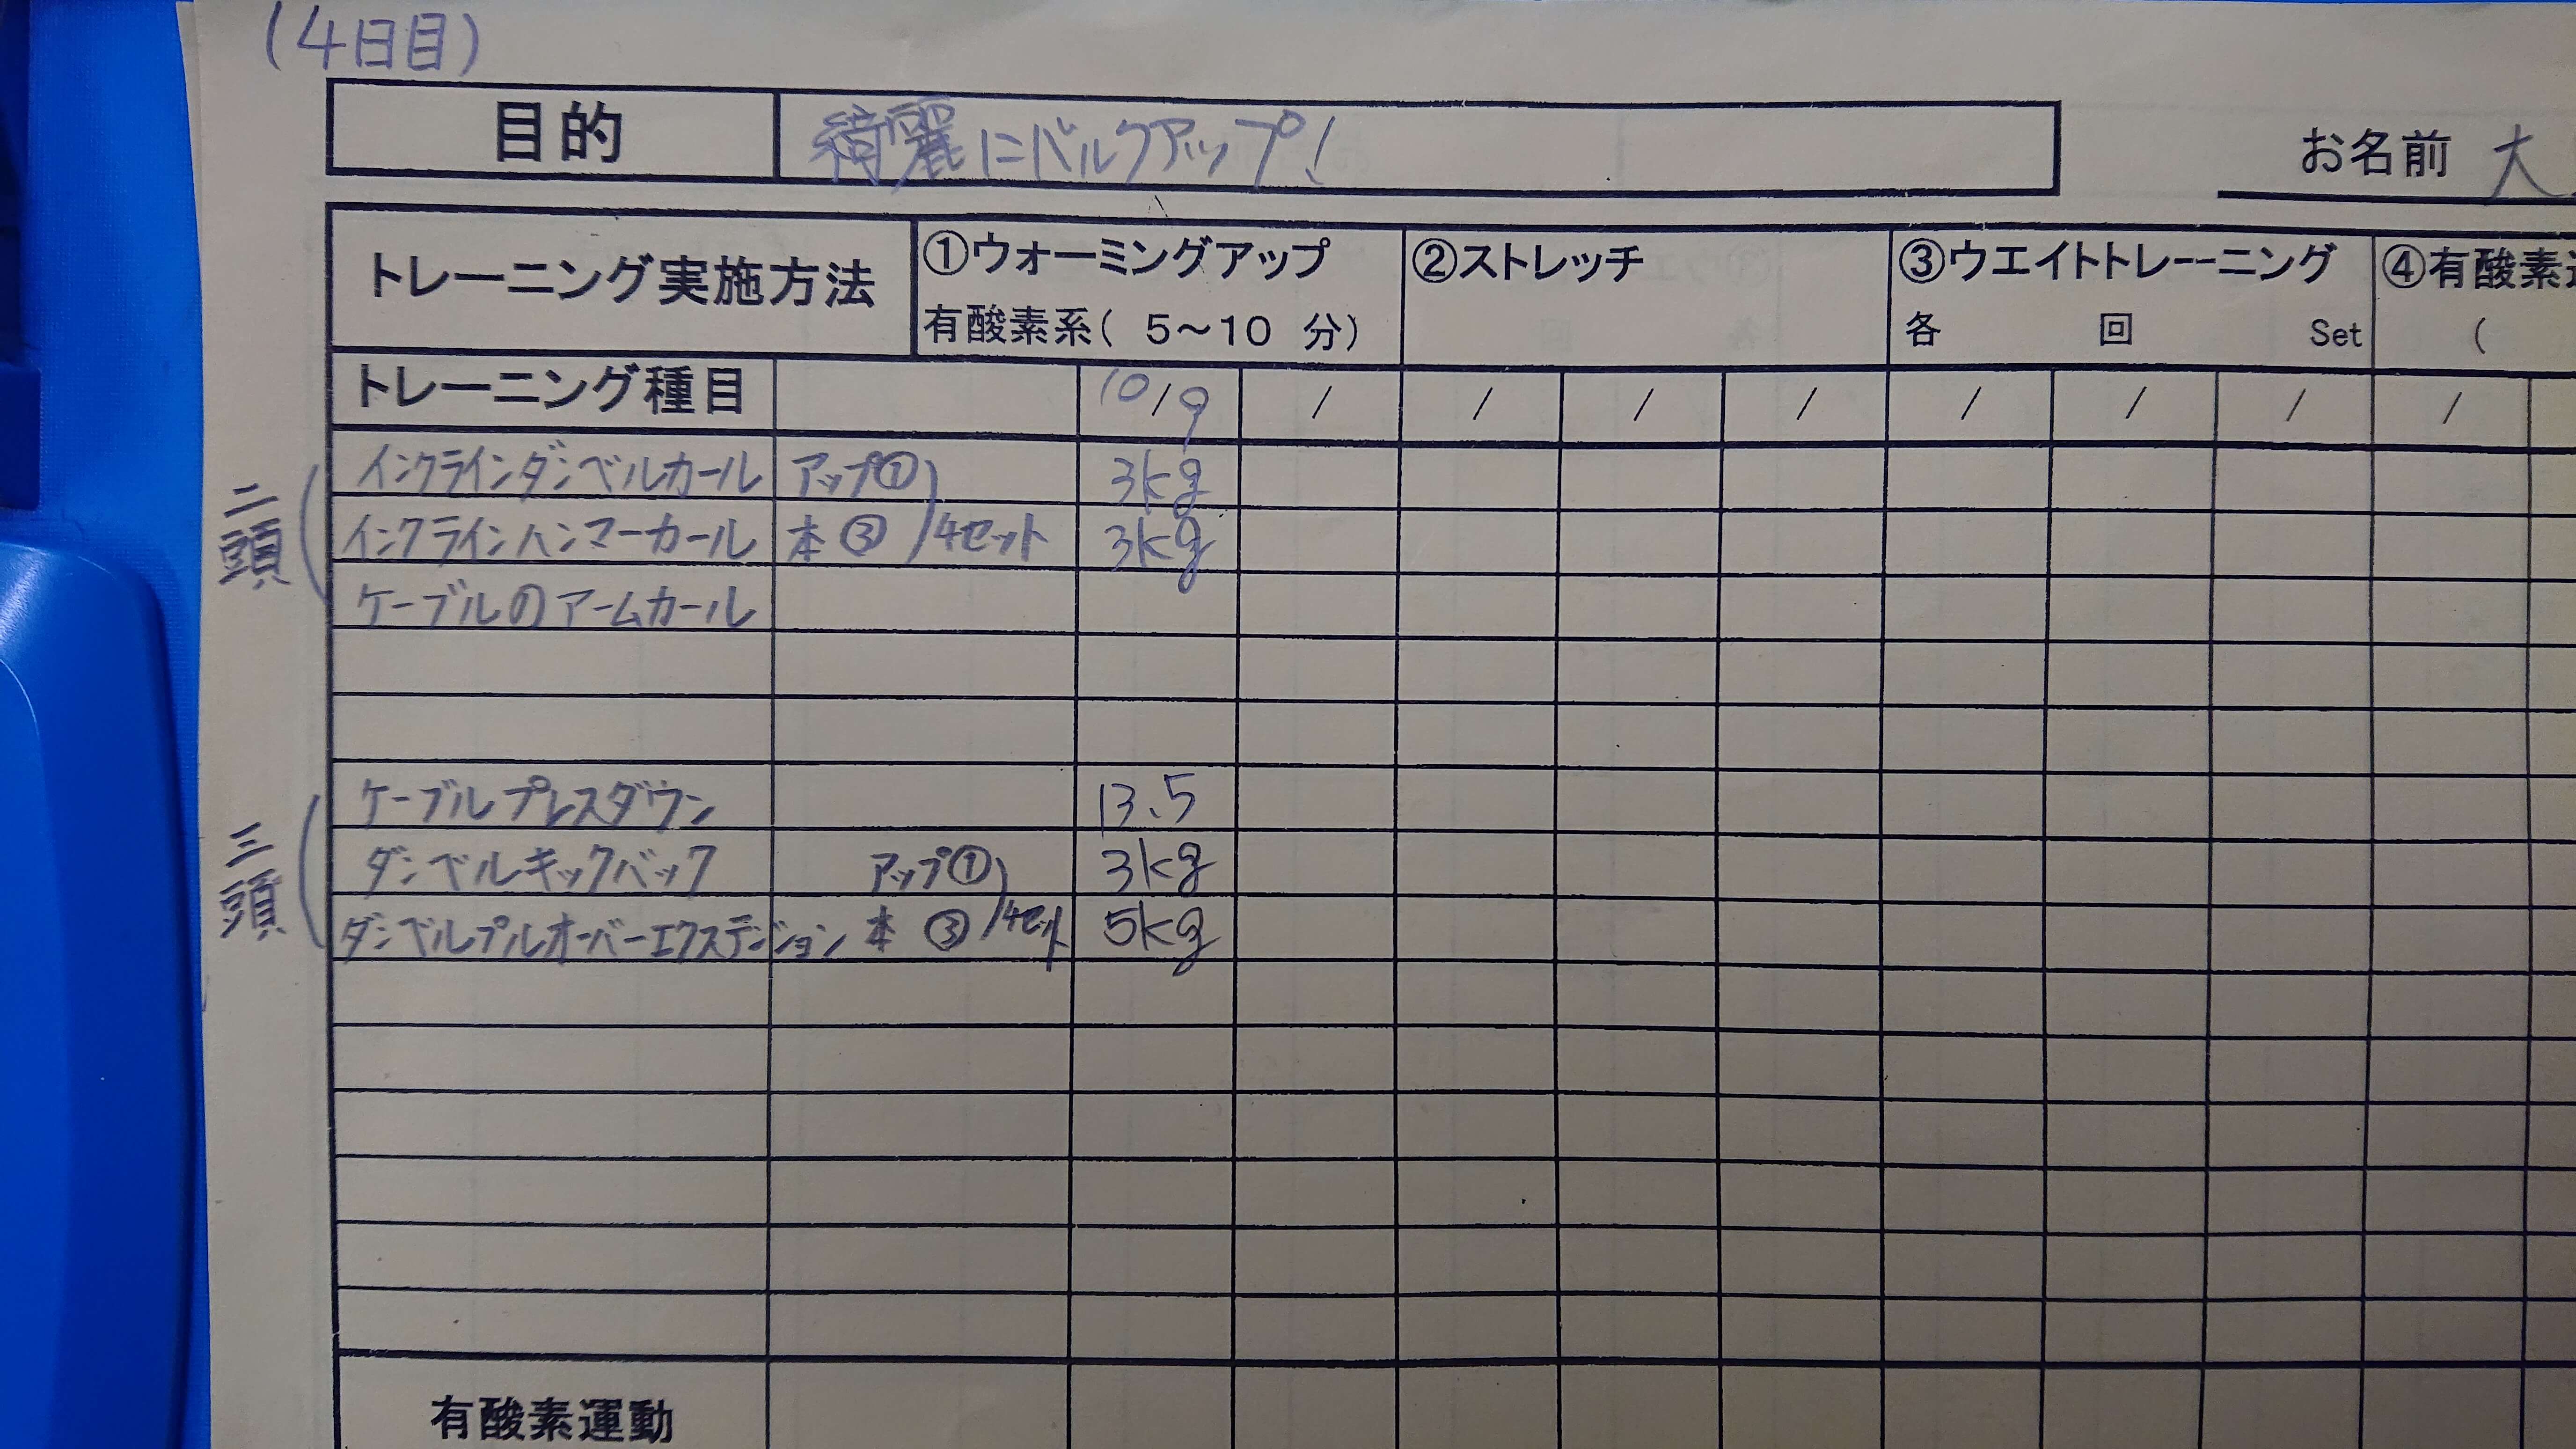 (4日目)
目的 綺麗にバルクアップ!
お名前 大
トレーニング実施方法 ①ウォーミングアップ ②ストレッチ ③ウエイトトレーニング ④有酸素
有酸素系( 5~10 分) 各 回 Set (
トレーニング種目 10/9 / / / / / / / /
二頭
インクラインダンベルカール アップ① 3kg
インクラインハンマーカール 本③ 4セット 3kg
ケーブルのアームカール
三頭
ケーブルプレスダウン 13.5
ダンベルキックバック アップ① 3kg
ダンベルプルオーバーエクステンション 本③ 4セット 5kg
有酸素運動